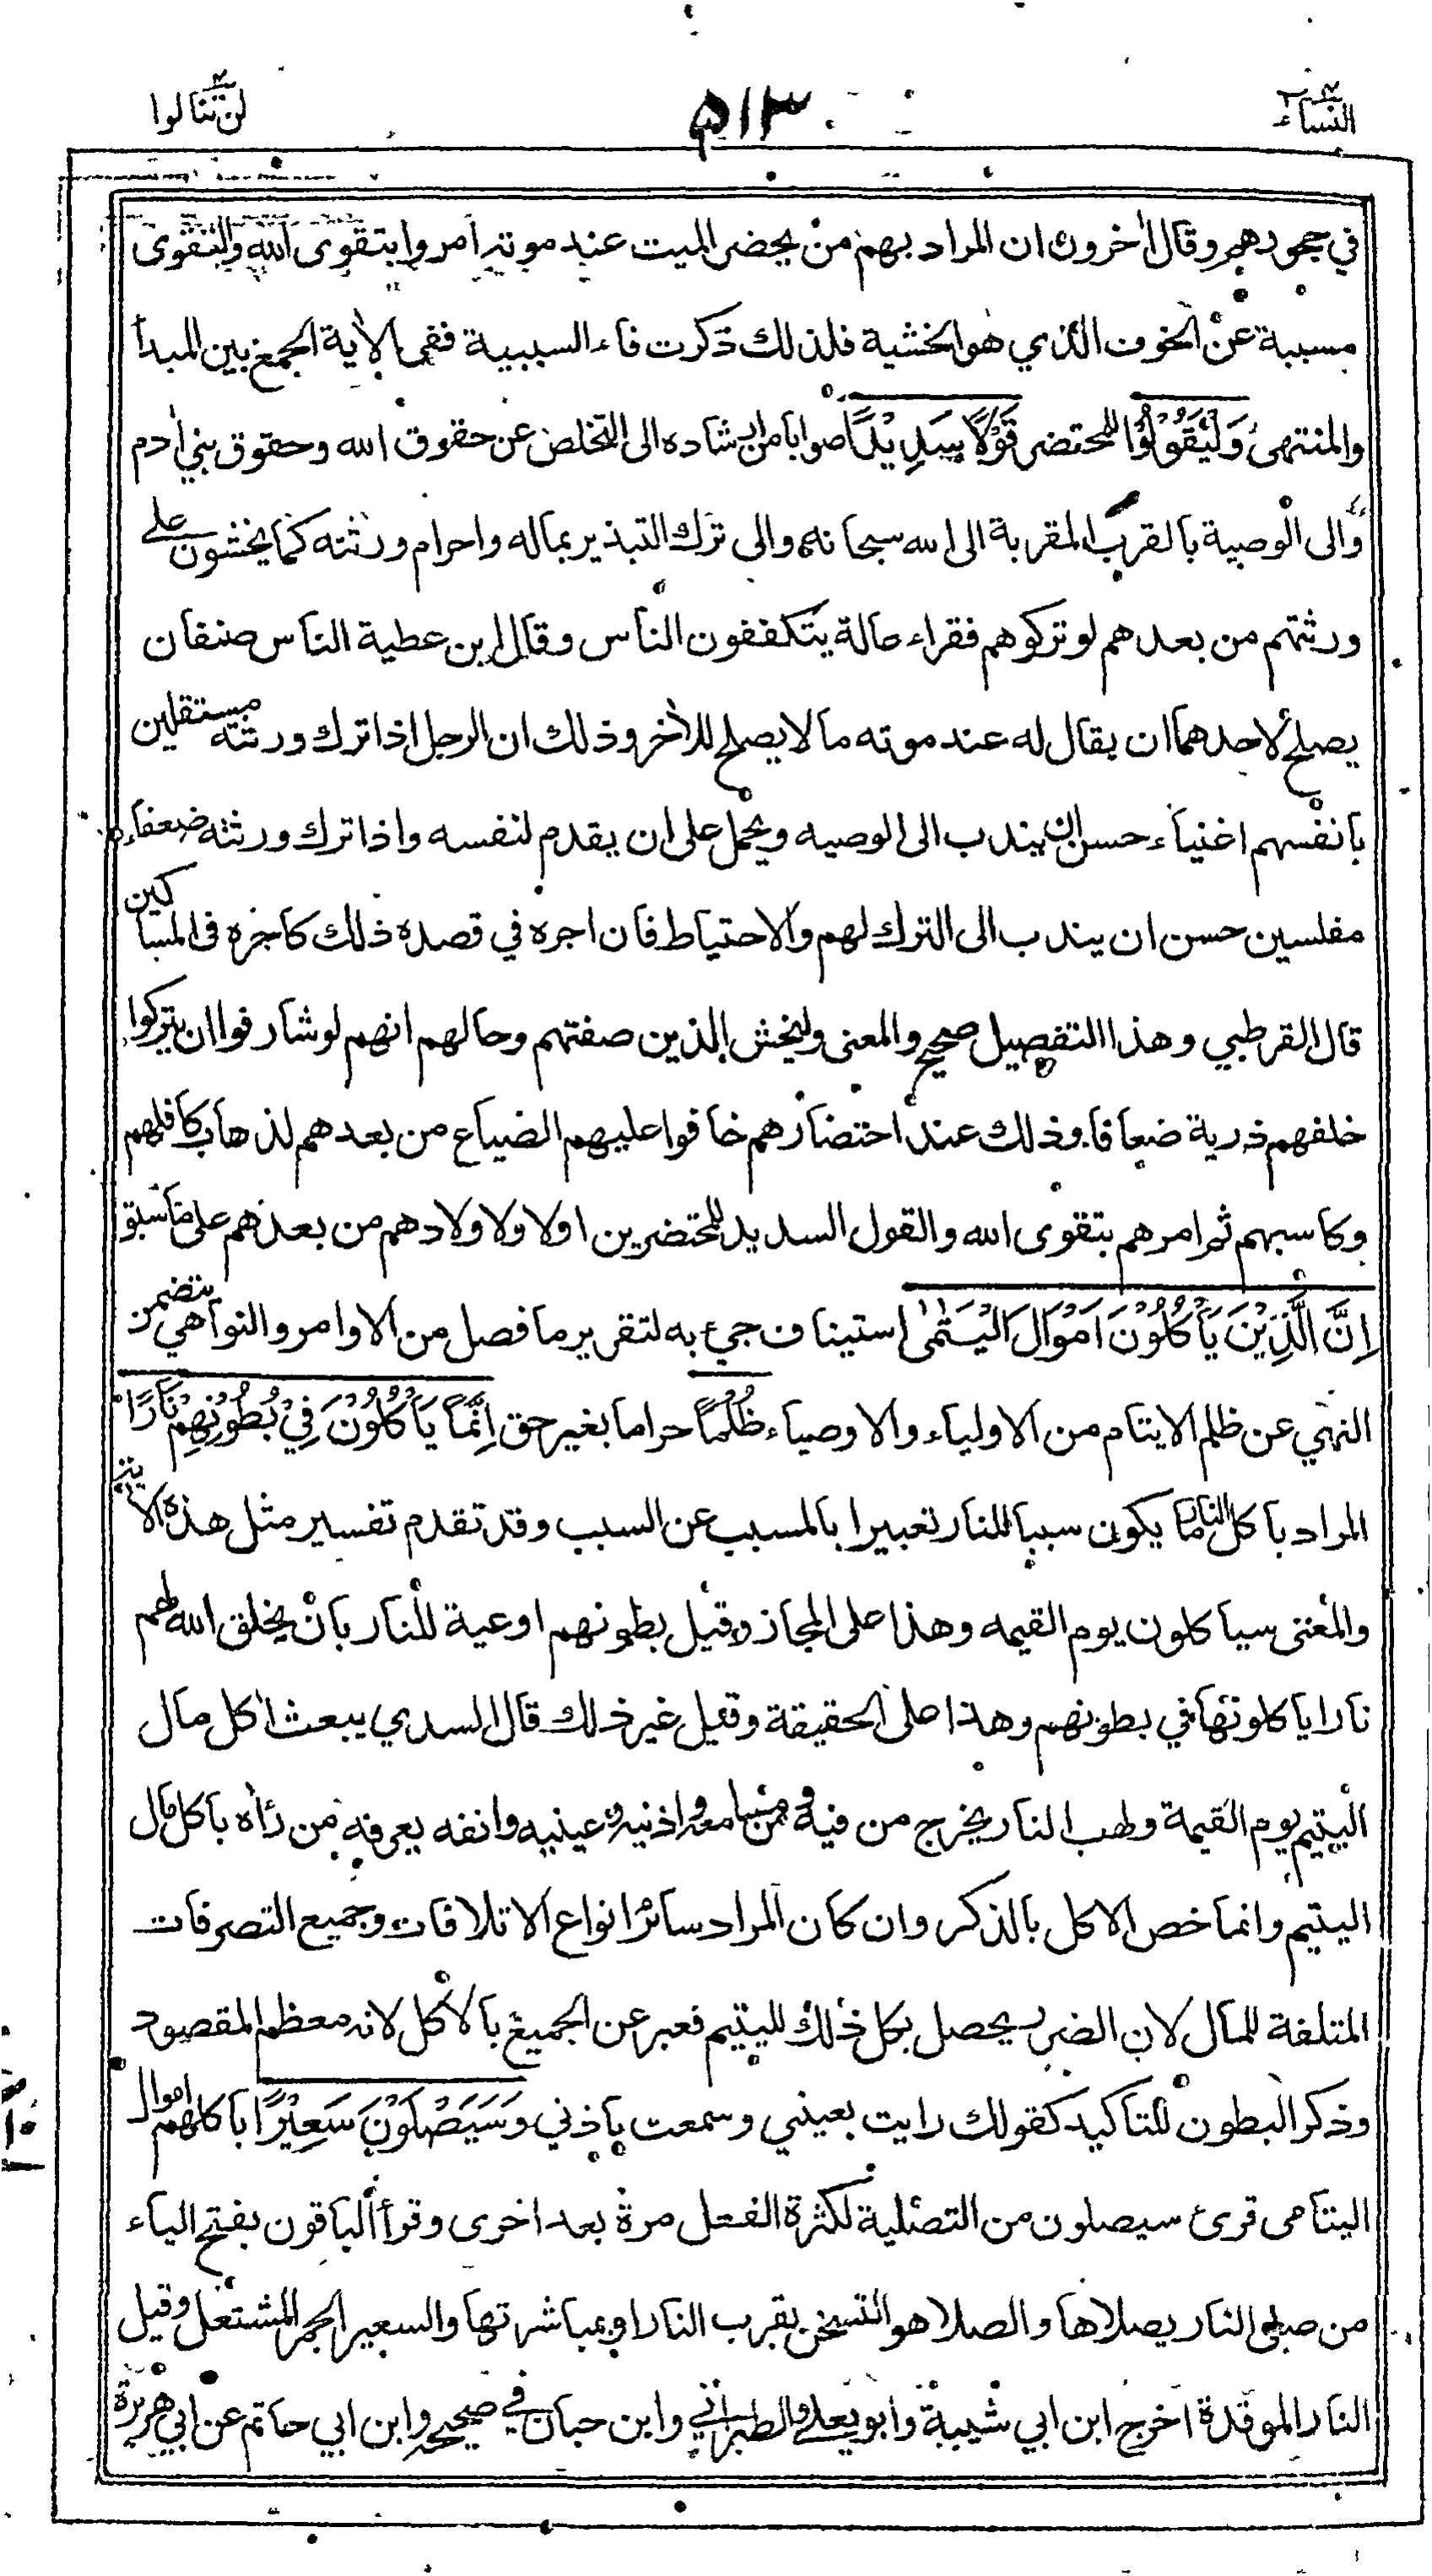 النساء ٤
٥١٣
لن تنالوا ٤
في حجورهم وقال اٰخرون ان المراد بهم من يحضر الميت عند موته امروا بتقوى الله والتقوى
مسببة عن الخوف الذي هو الخشية فلذلك ذكرت فاء السببية ففى الاٰية الجمع بين المبدأ
والمنتهى وَلْيَقُوْلُوْا للمحتضر قَوْلًا سَدِيْدًا صوابا من ارشاده الى التخلص عن حقوق الله وحقوق بني اٰدم
والى الوصية بالقرب المقربة الى الله سبحانه والى ترك التبذير بماله واحرام ورثته كما يخشون على
ورثتهم من بعدهم لو تركوهم فقراء عالة يتكففون الناس وقال ابن عطية الناس صنفان
يصلح لاحدهما ان يقال له عند موته ما لا يصلح للاٰخر وذلك ان الرجل اذا ترك ورثته مستقلين
بانفسهم اغنياء حسن ان يندب الى الوصيه ويحمل على ان يقدم لنفسه واذا ترك ورثته ضعفاء
مفلسين حسن ان يندب الى الترك لهم والاحتياط فان اجره في قصده ذلك كاجره فى المساكين
قال القرطبي وهذا التفصيل صحيح والمعنى وليخش الذين صفتهم وحالهم انهم لو شارفوا ان يتركوا
خلفهم ذرية ضعافا وذلك عند احتضارهم خافوا عليهم الضياع من بعدهم لذهاب كافلهم
وكاسبهم ثم امرهم بتقوى الله والقول السديد للمحتضرين او لاولادهم من بعدهم على ما سبق
اِنَّ الَّذِيْنَ يَأْكُلُوْنَ اَمْوَالَ الْيَتٰمٰى استيناف جيء به لتقرير ما فصل من الاوامر والنواهي يتضمن
النهي عن ظلم الايتام من الاولياء والاوصياء ظُلْمًا حراما بغير حق اِنَّمَا يَأْكُلُوْنَ فِيْ بُطُوْنِهِمْ نَارًا
المراد باكل النار ما يكون سببا للنار تعبيرا بالمسبب عن السبب وقد تقدم تفسير مثل هذه الاٰية
والمعنى سياكلون يوم القيمه وهذا على المجاز وقيل بطونهم اوعية للنار بان يخلق الله لهم
نارا ياكلونها في بطونهم وهذا على الحقيقة وقيل غير ذلك قال السدي يبعث اٰكل مال
اليتيم يوم القيمة ولهب النار يخرج من فيه ومن مسامعه واذنيه وعينيه وانفه يعرفه من رأه باكل مال
اليتيم وانما خص الاكل بالذكر وان كان المراد سائر انواع الاتلافات وجميع التصرفات
المتلفة للمال لان الضرر يحصل بكل ذلك لليتيم فعبر عن الجميع بالاكل لانه معظم المقصود
وذكر البطون للتأكيد كقولك رايت بعيني وسمعت باذني وَسَيَصْلَوْنَ سَعِيْرًا باكلهم اموال
اليتامى قرئ سيصلون من التصلية لكثرة الفعل مرة بعد اخرى وقرأ الباقون بفتح الياء
من صلى النار يصلاها والصلا هو التسخن بقرب النار او بمباشرتها والسعير الجمر المشتعل وقيل
النار الموقدة اخرج ابن ابي شيبة وابو يعلى والطبراني وابن حبان في صحيحه وابن ابي حاتم عن ابي هريرة